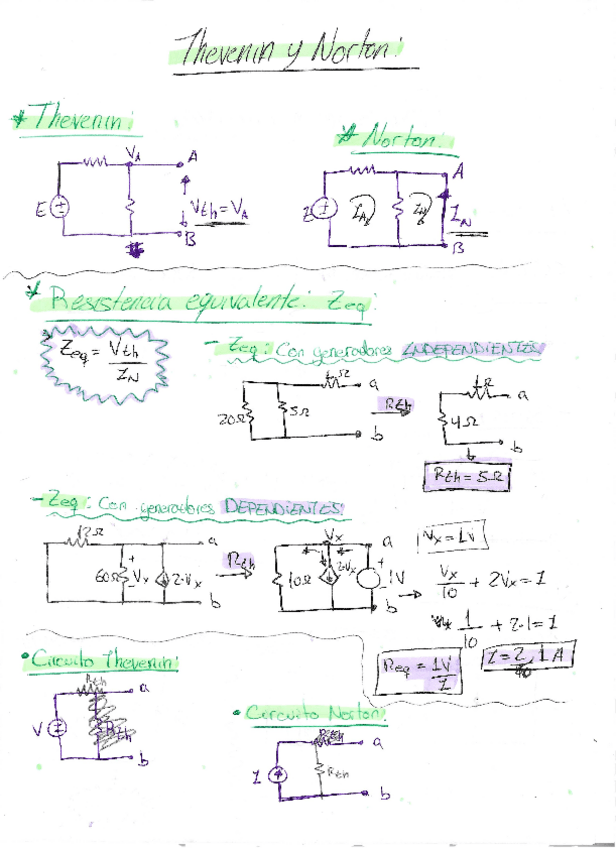 Thevenin y Norton:
* Thevenin:
* Norton:
VA
A
E
Vth=VA
B
A
IN
B
* Resistencia equivalente: Zeq:
Zeq = Vth
IN
- Zeq: Con generadores INDEPENDIENTES
1Ω
a
20Ω
5Ω
Rth
b
1Ω
a
4Ω
b
Rth = 5Ω
- Zeq: Con generadores DEPENDIENTES
12Ω
a
60Ω
+
Vx
-
2·Vx
b
Rth
Vx
a
10Ω
2·Vx
+
1V
-
b
Vx = 1V
Vx/10 + 2Vx = I
1/10 + 2·1 = I
Req = 1V/I
I = 2,1A
• Circuito Thevenin:
Rth
a
V
b
• Circuito Norton:
a
I
Rth
b